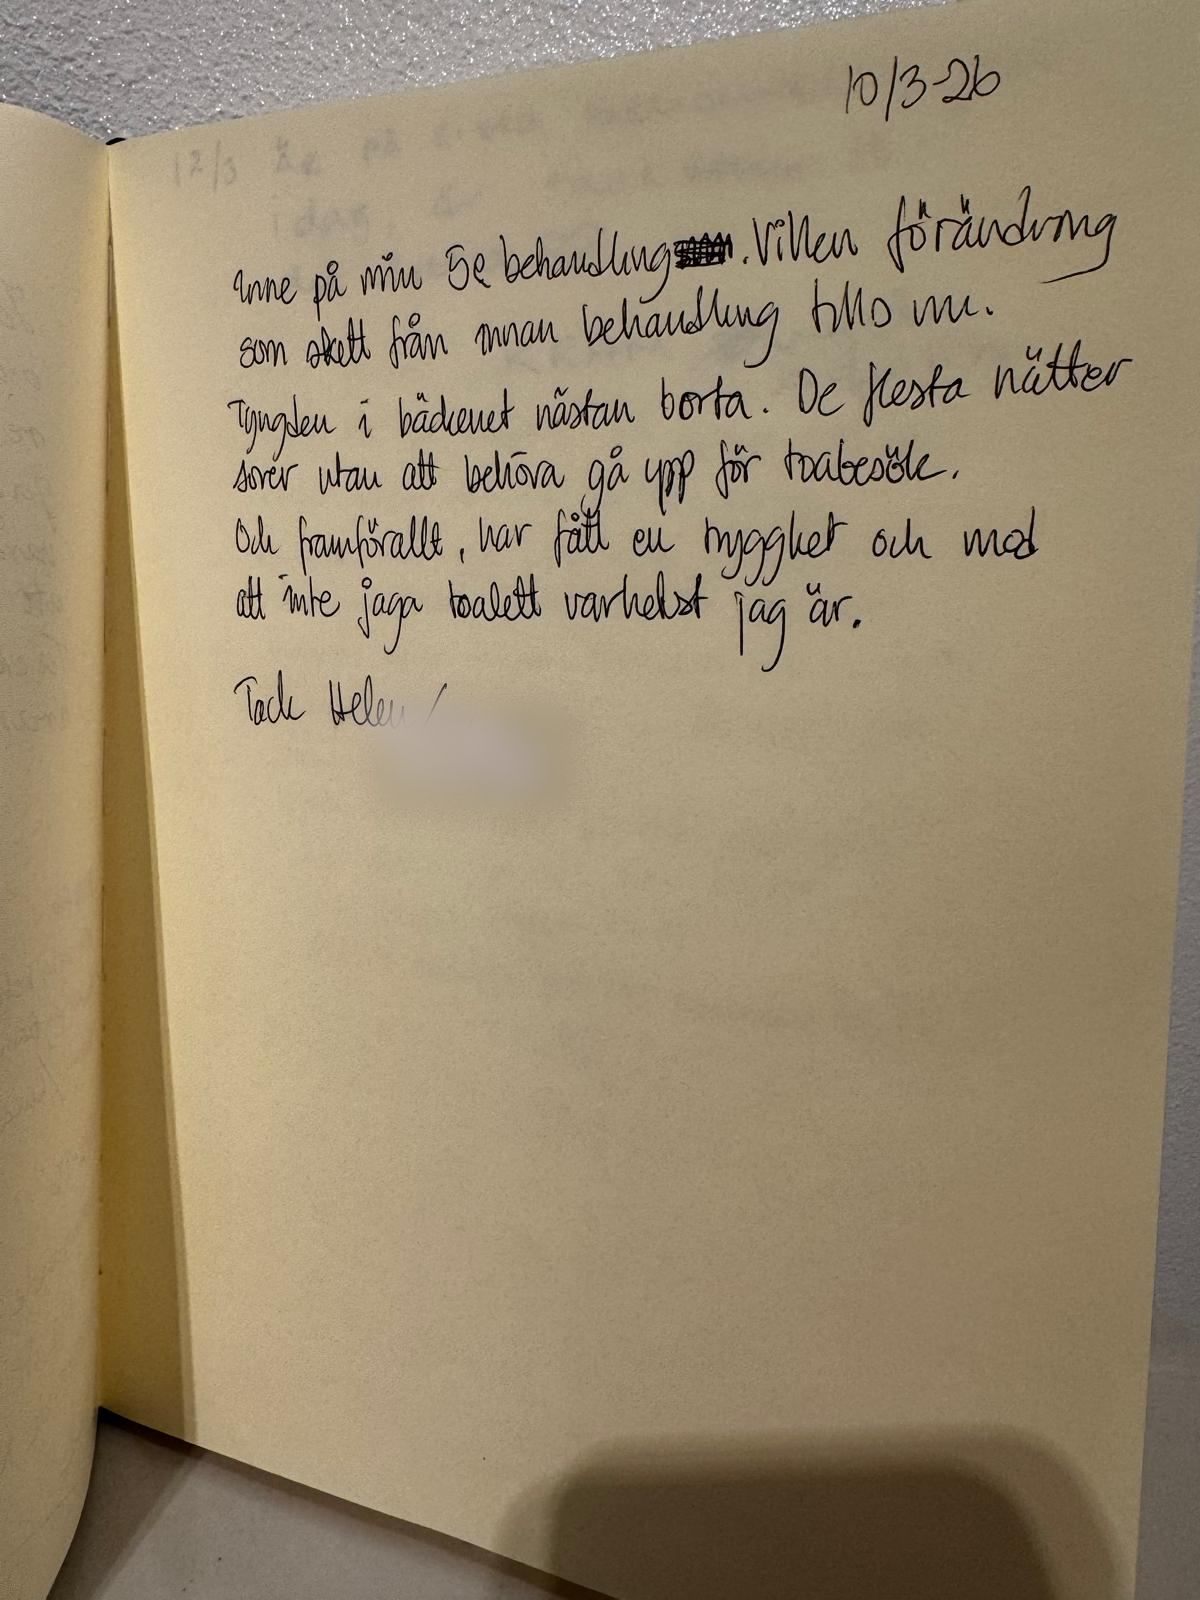 10/3-26
Inne på min 5e behandling. Vilken förändring
som skett från innan behandling tills nu.
Tyngden i bäckenet nästan borta. De flesta nätter
sover utan att behöva gå upp för toabesök.
Och framförallt, har fått en trygghet och mod
att inte jaga toalett varhelst jag är.
Tack Helen /